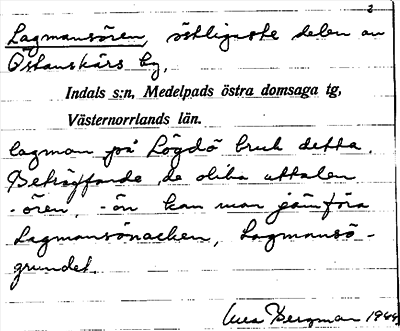 2
Lagmansören, östligaste delen av
Östanskärs by,
Indals s:n, Medelpads östra domsaga tg,
Västernorrlands län.
lagman på Lögdö bruk detta.
Beträffande de olika uttalen
-ören, -ön kan man jämföra
Lagmansönacken, Lagmansö-
grundet.
Bergman 1944